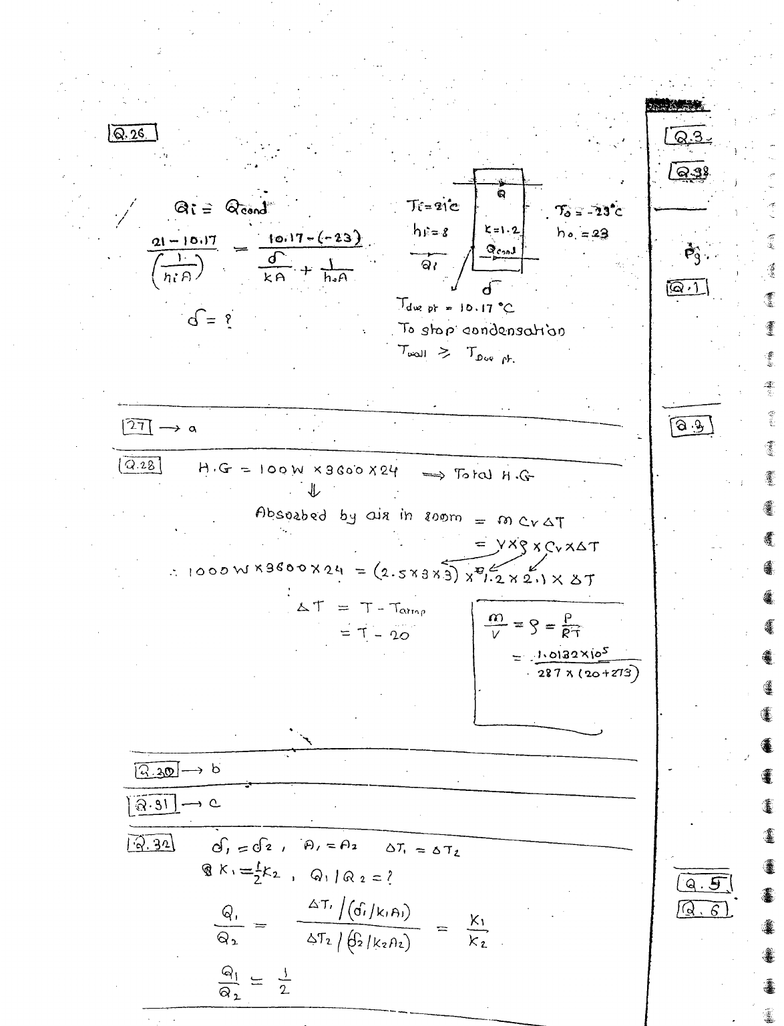 Q.26
Qi = Qcond
21 - 10.17 / (1/hiA) = 10.17 - (-23) / (δ/kA + 1/hoA)
δ = ?
Ti = 21°C
hi = 8
Qi
Q
K = 1.2
Qcond
δ
To = -23°C
ho = 23
Tdue pt = 10.17 °C
To stop condensation
Twall ≥ TDue pt.
27 → a
Q.28 H.G = 100W × 3600 × 24 ⇒ Total H.G
⇓
Absorbed by air in room = m Cv ΔT
= V × ρ × Cv × ΔT
∴ 1000W × 3600 × 24 = (2.5 × 3 × 3) × 1.2 × 2.1 × ΔT
ΔT = T - Tatmp
= T - 20
m/V = ρ = P/RT
= 1.0132 × 10⁵ / 287 × (20 + 273)
Q.30 → b
Q.31 → c
Q.32 δ1 = δ2, A1 = A2 ΔT1 = ΔT2
K1 = 1/2 K2, Q1/Q2 = ?
Q1/Q2 = ΔT1/(δ1/K1A1) / ΔT2/(δ2/K2A2) = K1/K2
Q1/Q2 = 1/2
Q.3
Q.98
Pg
Q.1
Q.3
Q.5
Q.6